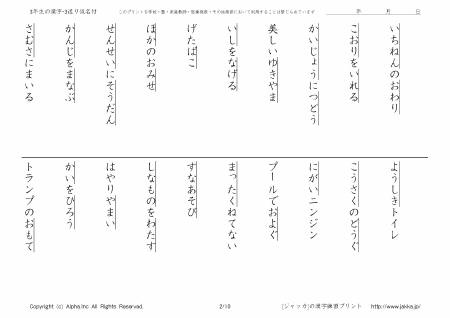 3年生の漢字-3送り仮名付
このプリントは学校・塾・家庭教師・医療機関・その他教育において利用することは禁じられています
年 月 日
いちねんのおわり
こおりをいれる
かいじょうにつどう
美しいゆきやま
いしをなげる
げたばこ
ほかのおみせ
せんせいにそうだん
かんじをまなぶ
さむさにまいる
ようしきトイレ
こうさくのどうぐ
にがいニンジン
プールでおよぐ
まったくねてない
すなあそび
しなものをわたす
はやりやまい
かいをひろう
トランプのおもて
Copyright (c) Alpha.Inc All Rights Reserved.
2/10
[ジャッカ]の漢字練習プリント http://www.jakka.jp/